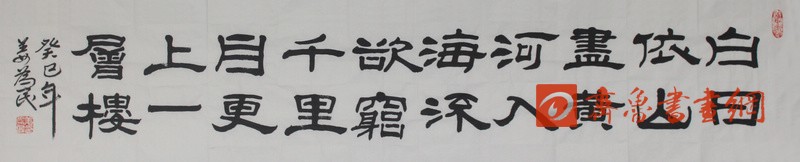 白日
依山
盡黃
河入
海流
欲窮
千里
目更
上一
層樓
癸巳年
姜為民
齊魯書畫網